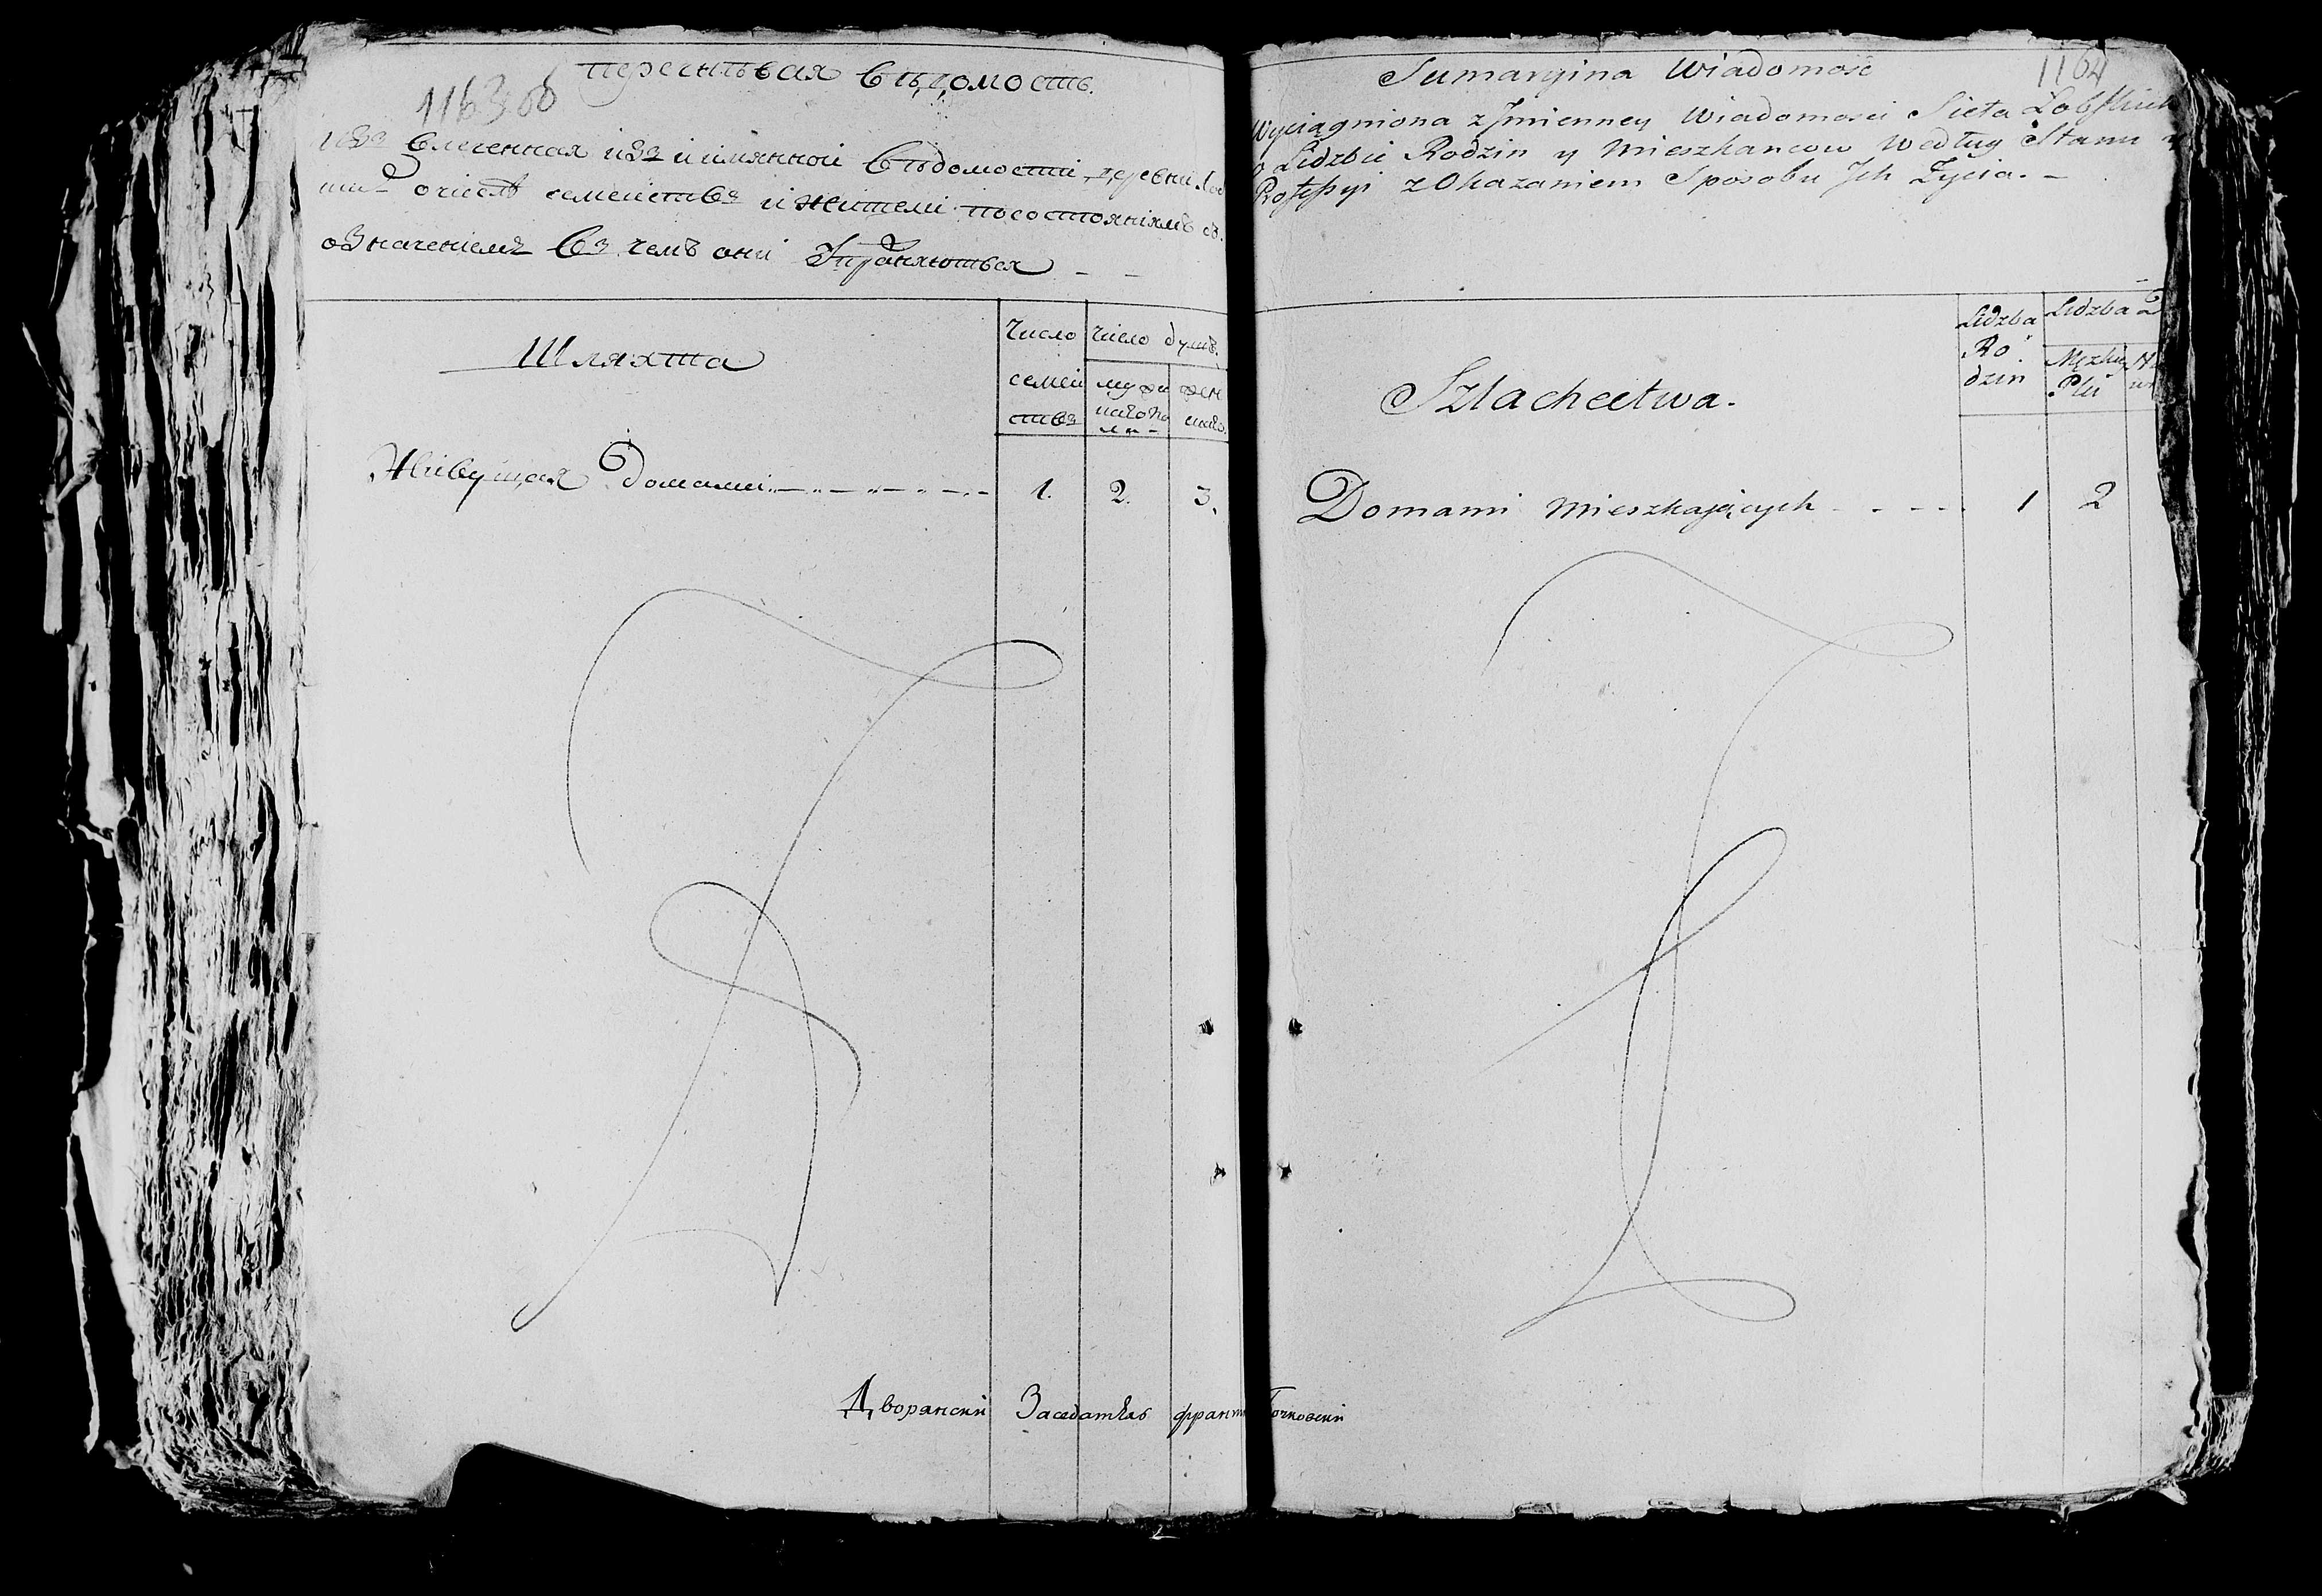 перечневая вѣдомость.
1163 об
извлеченная изъ иимянной вѣдомости, деревни
очиселѣ семействъ ижителі посостояніямъ съ
означеніемъ въ чемъ они упражняютъся
Шляхта
Число
семей
ствъ
число душъ.
мужи
скаго по
ла
жен
скаго.
Живущая Домами 1. 2. 3.
Дворянскій Заседатель
Sumaryina Wiadomosc
1164
Wyciągniona z Jmienney Wiadomosci Sieła
o Lidzbie Rodzin y Mieszkancow Według Stanu y
Profeſsyi z Okazaniem Sposobu Jch Zycia.
Szlachectwa.
Lidzba
Ro
dzin
Lidzba
Męzkiey
Płci
Domami Mieszkających 1 2